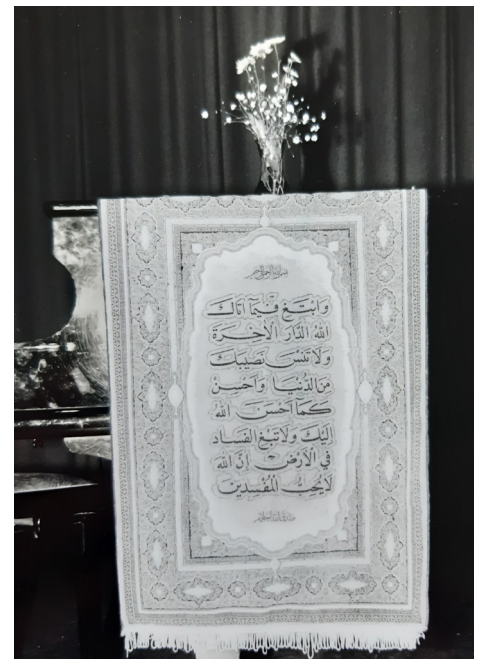 بسم الله الرحمن الرحيم
وَابْتَغِ فِيمَا آتَاكَ
اللهُ الدَّارَ الْآخِرَةَ
وَلَا تَنْسَ نَصِيبَكَ
مِنَ الدُّنْيَا وَأَحْسِنْ
كَمَا أَحْسَنَ اللهُ
إِلَيْكَ وَلَا تَبْغِ الْفَسَادَ
فِي الْأَرْضِ إِنَّ اللهَ
لَا يُحِبُّ الْمُفْسِدِينَ
صدق الله العظيم